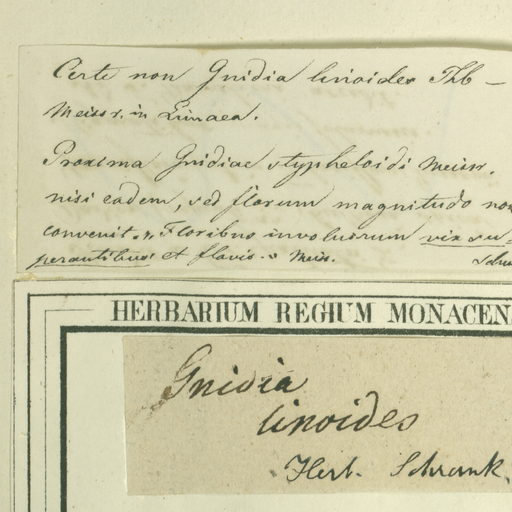 Certe non Gnidia linoides Thb –
Meissr. in Linnaea.
Proxima Gnidiae stypheloidi Meissr.
nisi eadem, sed florum magnitudo non
convenit. „Floribus involucrum vix su-
perantibus et flavis." Meiss.
HERBARIUM REGIUM MONACEN
Gnidia
linoides
Herb. Schrank.